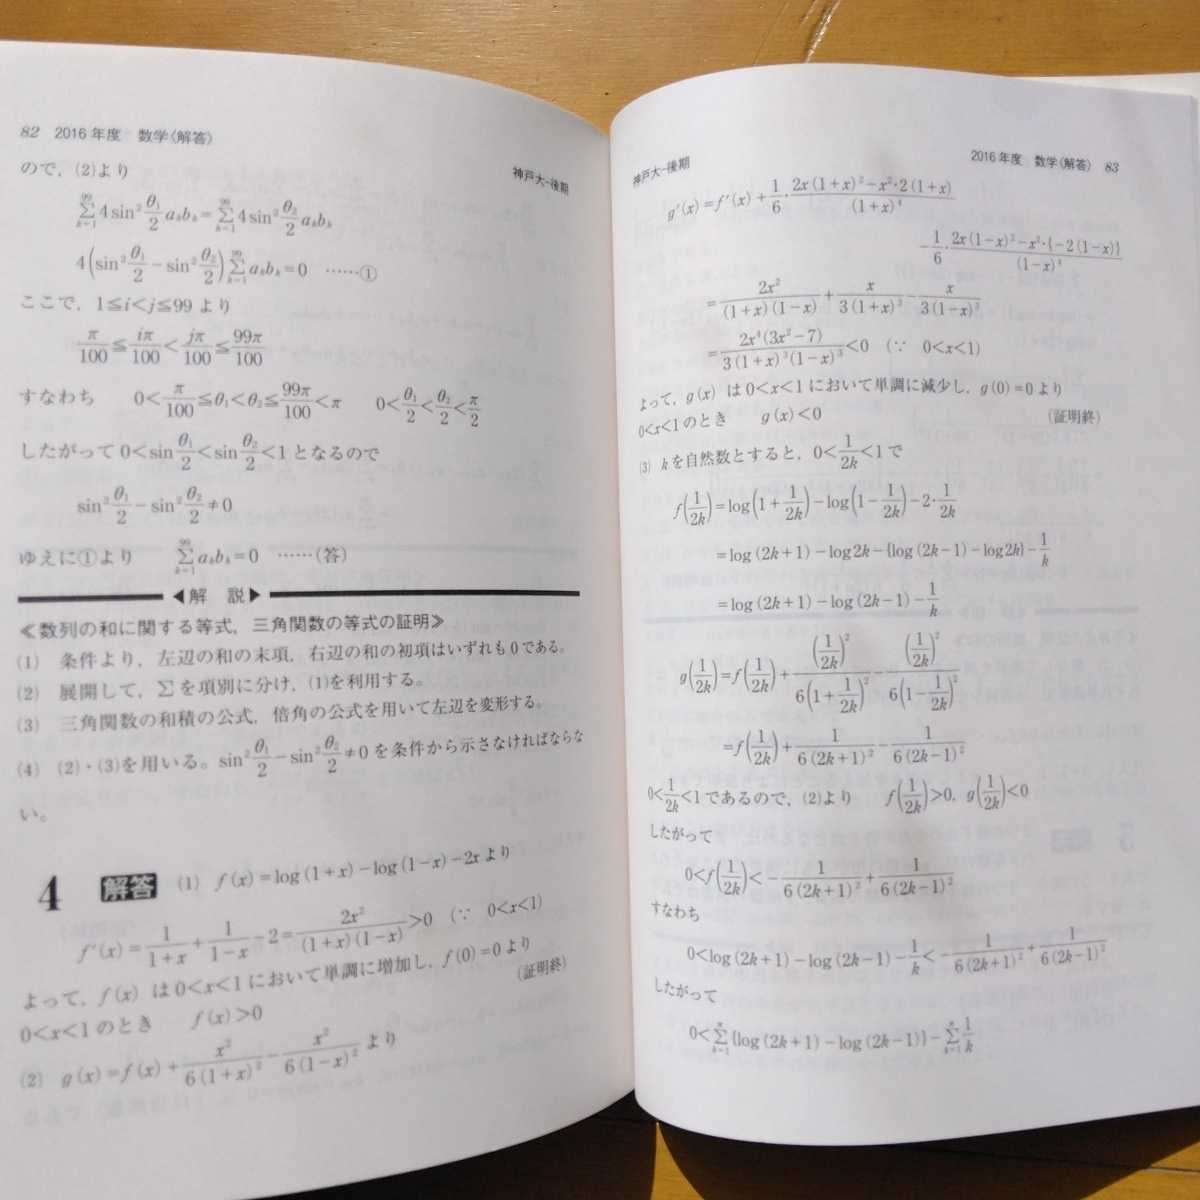 82 2016年度 数学〈解答〉
神戸大-後期
ので，(2)より
∑_{k=1}^{99} 4sin² θ₁/2 aₖbₖ = ∑_{k=1}^{99} 4sin² θ₂/2 aₖbₖ
4(sin² θ₁/2 − sin² θ₂/2) ∑_{k=1}^{99} aₖbₖ = 0 ……①
ここで，1≦i<j≦99 より
π/100 ≦ iπ/100 < jπ/100 ≦ 99π/100
すなわち 0< π/100 ≦θ₁<θ₂≦ 99π/100 <π 0< θ₁/2 < θ₂/2 < π/2
したがって 0<sin θ₁/2 <sin θ₂/2 <1 となるので
sin² θ₁/2 − sin² θ₂/2 ≠0
ゆえに①より ∑_{k=1}^{99} aₖbₖ=0 ……(答)
◀解 説▶
≪数列の和に関する等式，三角関数の等式の証明≫
(1) 条件より，左辺の和の末項，右辺の和の初項はいずれも0である。
(2) 展開して，∑を項別に分け，(1)を利用する。
(3) 三角関数の和積の公式，倍角の公式を用いて左辺を変形する。
(4) (2)・(3)を用いる。sin² θ₁/2 − sin² θ₂/2 ≠0 を条件から示さなければならな
い。
4 解答 (1) f(x)=log(1+x)−log(1−x)−2x より
f′(x)= 1/(1+x) + 1/(1−x) −2= 2x²/((1+x)(1−x)) >0 (∵ 0<x<1)
よって，f(x) は 0<x<1 において単調に増加し，f(0)=0 より
0<x<1 のとき f(x)>0 (証明終)
(2) g(x)=f(x)+ x²/(6(1+x)²) − x²/(6(1−x)²) より
神戸大-後期
2016年度 数学〈解答〉 83
g′(x)=f′(x)+ 1/6 · (2x(1+x)²−x²·2(1+x))/(1+x)⁴
− 1/6 · (2x(1−x)²−x²·{−2(1−x)})/(1−x)⁴
= 2x²/((1+x)(1−x)) + x/(3(1+x)³) − x/(3(1−x)³)
= 2x⁴(3x²−7)/(3(1+x)³(1−x)³) <0 (∵ 0<x<1)
よって，g(x) は 0<x<1 において単調に減少し，g(0)=0 より
0<x<1 のとき g(x)<0 (証明終)
(3) k を自然数とすると，0< 1/2k <1 で
f(1/2k)=log(1+ 1/2k)−log(1− 1/2k)−2· 1/2k
=log(2k+1)−log2k−{log(2k−1)−log2k}− 1/k
=log(2k+1)−log(2k−1)− 1/k
g(1/2k)=f(1/2k)+ (1/2k)²/(6(1+ 1/2k)²) − (1/2k)²/(6(1− 1/2k)²)
=f(1/2k)+ 1/(6(2k+1)²) − 1/(6(2k−1)²)
0< 1/2k <1 であるので，(2)より f(1/2k)>0，g(1/2k)<0
したがって
0<f(1/2k)<− 1/(6(2k+1)²) + 1/(6(2k−1)²)
すなわち
0<log(2k+1)−log(2k−1)− 1/k <− 1/(6(2k+1)²) + 1/(6(2k−1)²)
したがって
0< ∑_{k=1}^{n} {log(2k+1)−log(2k−1)}− ∑_{k=1}^{n} 1/k